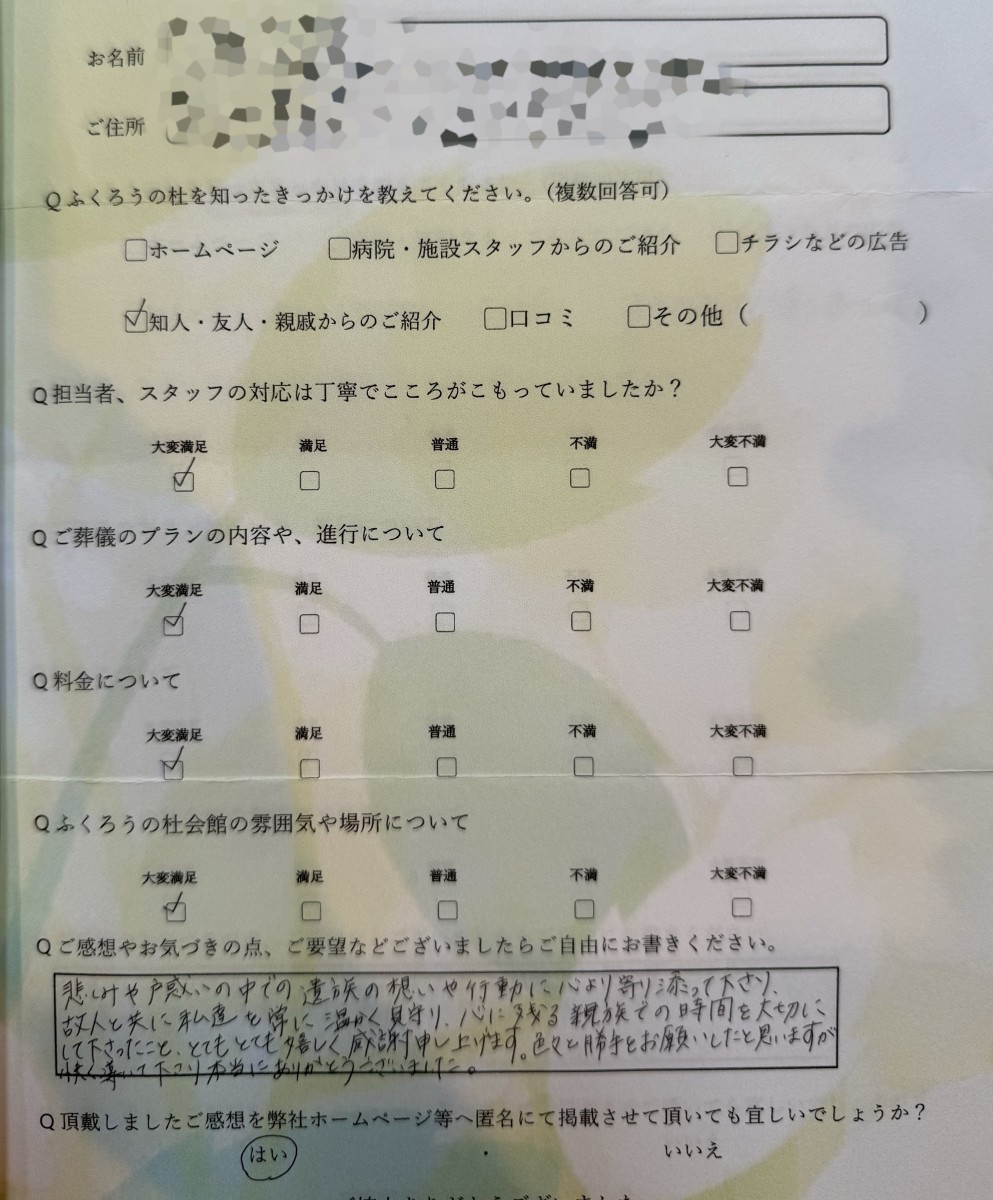 お名前
ご住所
Qふくろうの杜を知ったきっかけを教えてください。(複数回答可)
□ホームページ □病院・施設スタッフからのご紹介 □チラシなどの広告
☑知人・友人・親戚からのご紹介 □口コミ □その他( )
Q担当者、スタッフの対応は丁寧でこころがこもっていましたか？
大変満足 満足 普通 不満 大変不満
☑ □ □ □ □
Qご葬儀のプランの内容や、進行について
大変満足 満足 普通 不満 大変不満
☑ □ □ □ □
Q料金について
大変満足 満足 普通 不満 大変不満
☑ □ □ □ □
Qふくろうの杜会館の雰囲気や場所について
大変満足 満足 普通 不満 大変不満
☑ □ □ □ □
Qご感想やお気づきの点、ご要望などございましたらご自由にお書きください。
悲しみや戸惑いの中での遺族の想いや行動に心より寄り添って下さり、
故人と共に私達を常に温かく見守り、心に残る親族での時間を大切に
して下さったこと、とてもとても嬉しく感謝申し上げます。色々と勝手をお願いしたと思いますが
快く導いて下さり本当にありがとうございました。
Q頂戴しましたご感想を弊社ホームページ等へ匿名にて掲載させて頂いても宜しいでしょうか？
はい ・ いいえ